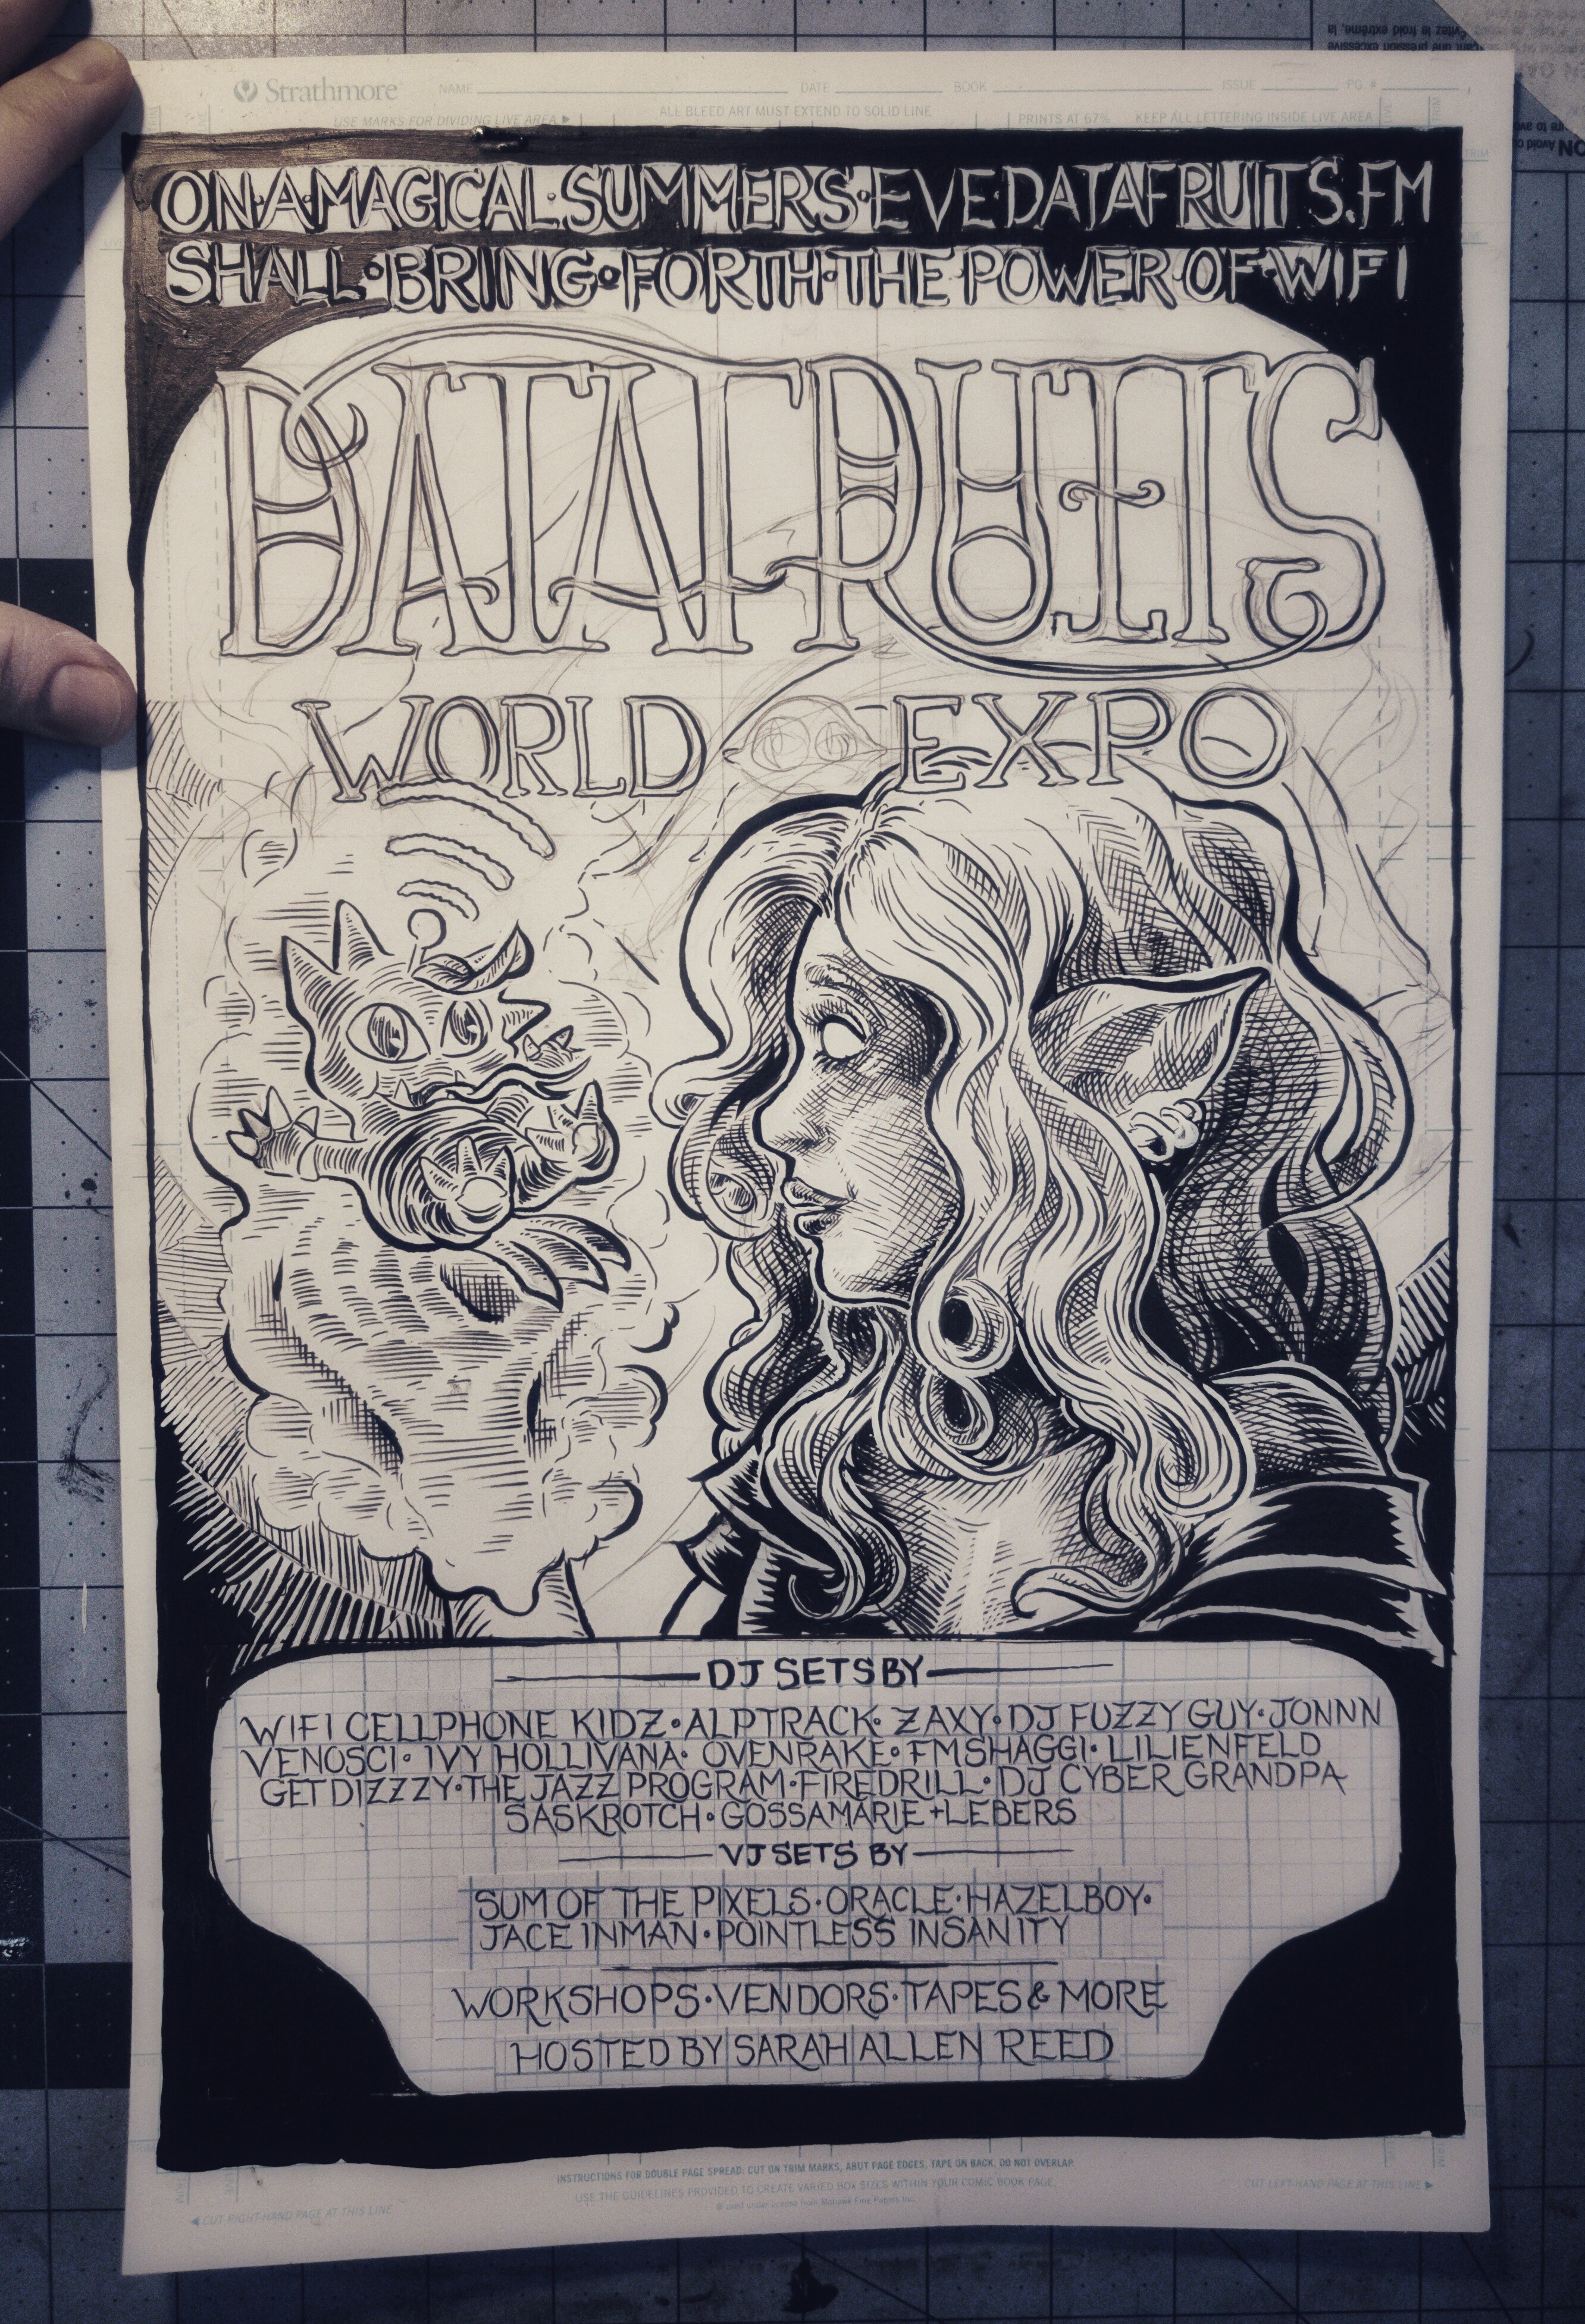 Strathmore NAME DATE BOOK ISSUE PG. #
USE MARKS FOR DIVIDING LIVE AREA ▶ ALL BLEED ART MUST EXTEND TO SOLID LINE PRINTS AT 67% KEEP ALL LETTERING INSIDE LIVE AREA
ON·A·MAGICAL·SUMMERS·EVE·DATAFRUITS.FM
SHALL·BRING·FORTH·THE·POWER·OF·WIFI
DATAFRUITS
WORLD EXPO
DJ SETS BY
WIFI CELLPHONE KIDZ·ALPTRACK·ZAXY·DJ FUZZY GUY·JONNN
VENOSCI·IVY HOLLIVANA·OVENRAKE·FMSHAGGI·LILIENFELD
GETDIZZZY·THE JAZZ PROGRAM·FIREDRILL·DJ CYBER GRANDPA
SASKROTCH·GOSSAMARIE+LEBERS
VJ SETS BY
SUM OF THE PIXELS·ORACLE·HAZELBOY·
JACE INMAN·POINTLESS INSANITY
WORKSHOPS·VENDORS·TAPES & MORE
HOSTED BY SARAH ALLEN REED
INSTRUCTIONS FOR DOUBLE PAGE SPREAD: CUT ON TRIM MARKS, ABUT PAGE EDGES, TAPE ON BACK, DO NOT OVERLAP.
USE THE GUIDELINES PROVIDED TO CREATE VARIED BOX SIZES WITHIN YOUR COMIC BOOK PAGE.
® used under license from Mohawk Fine Papers Inc.
◀ CUT RIGHT-HAND PAGE AT THIS LINE
CUT LEFT-HAND PAGE AT THIS LINE ▶